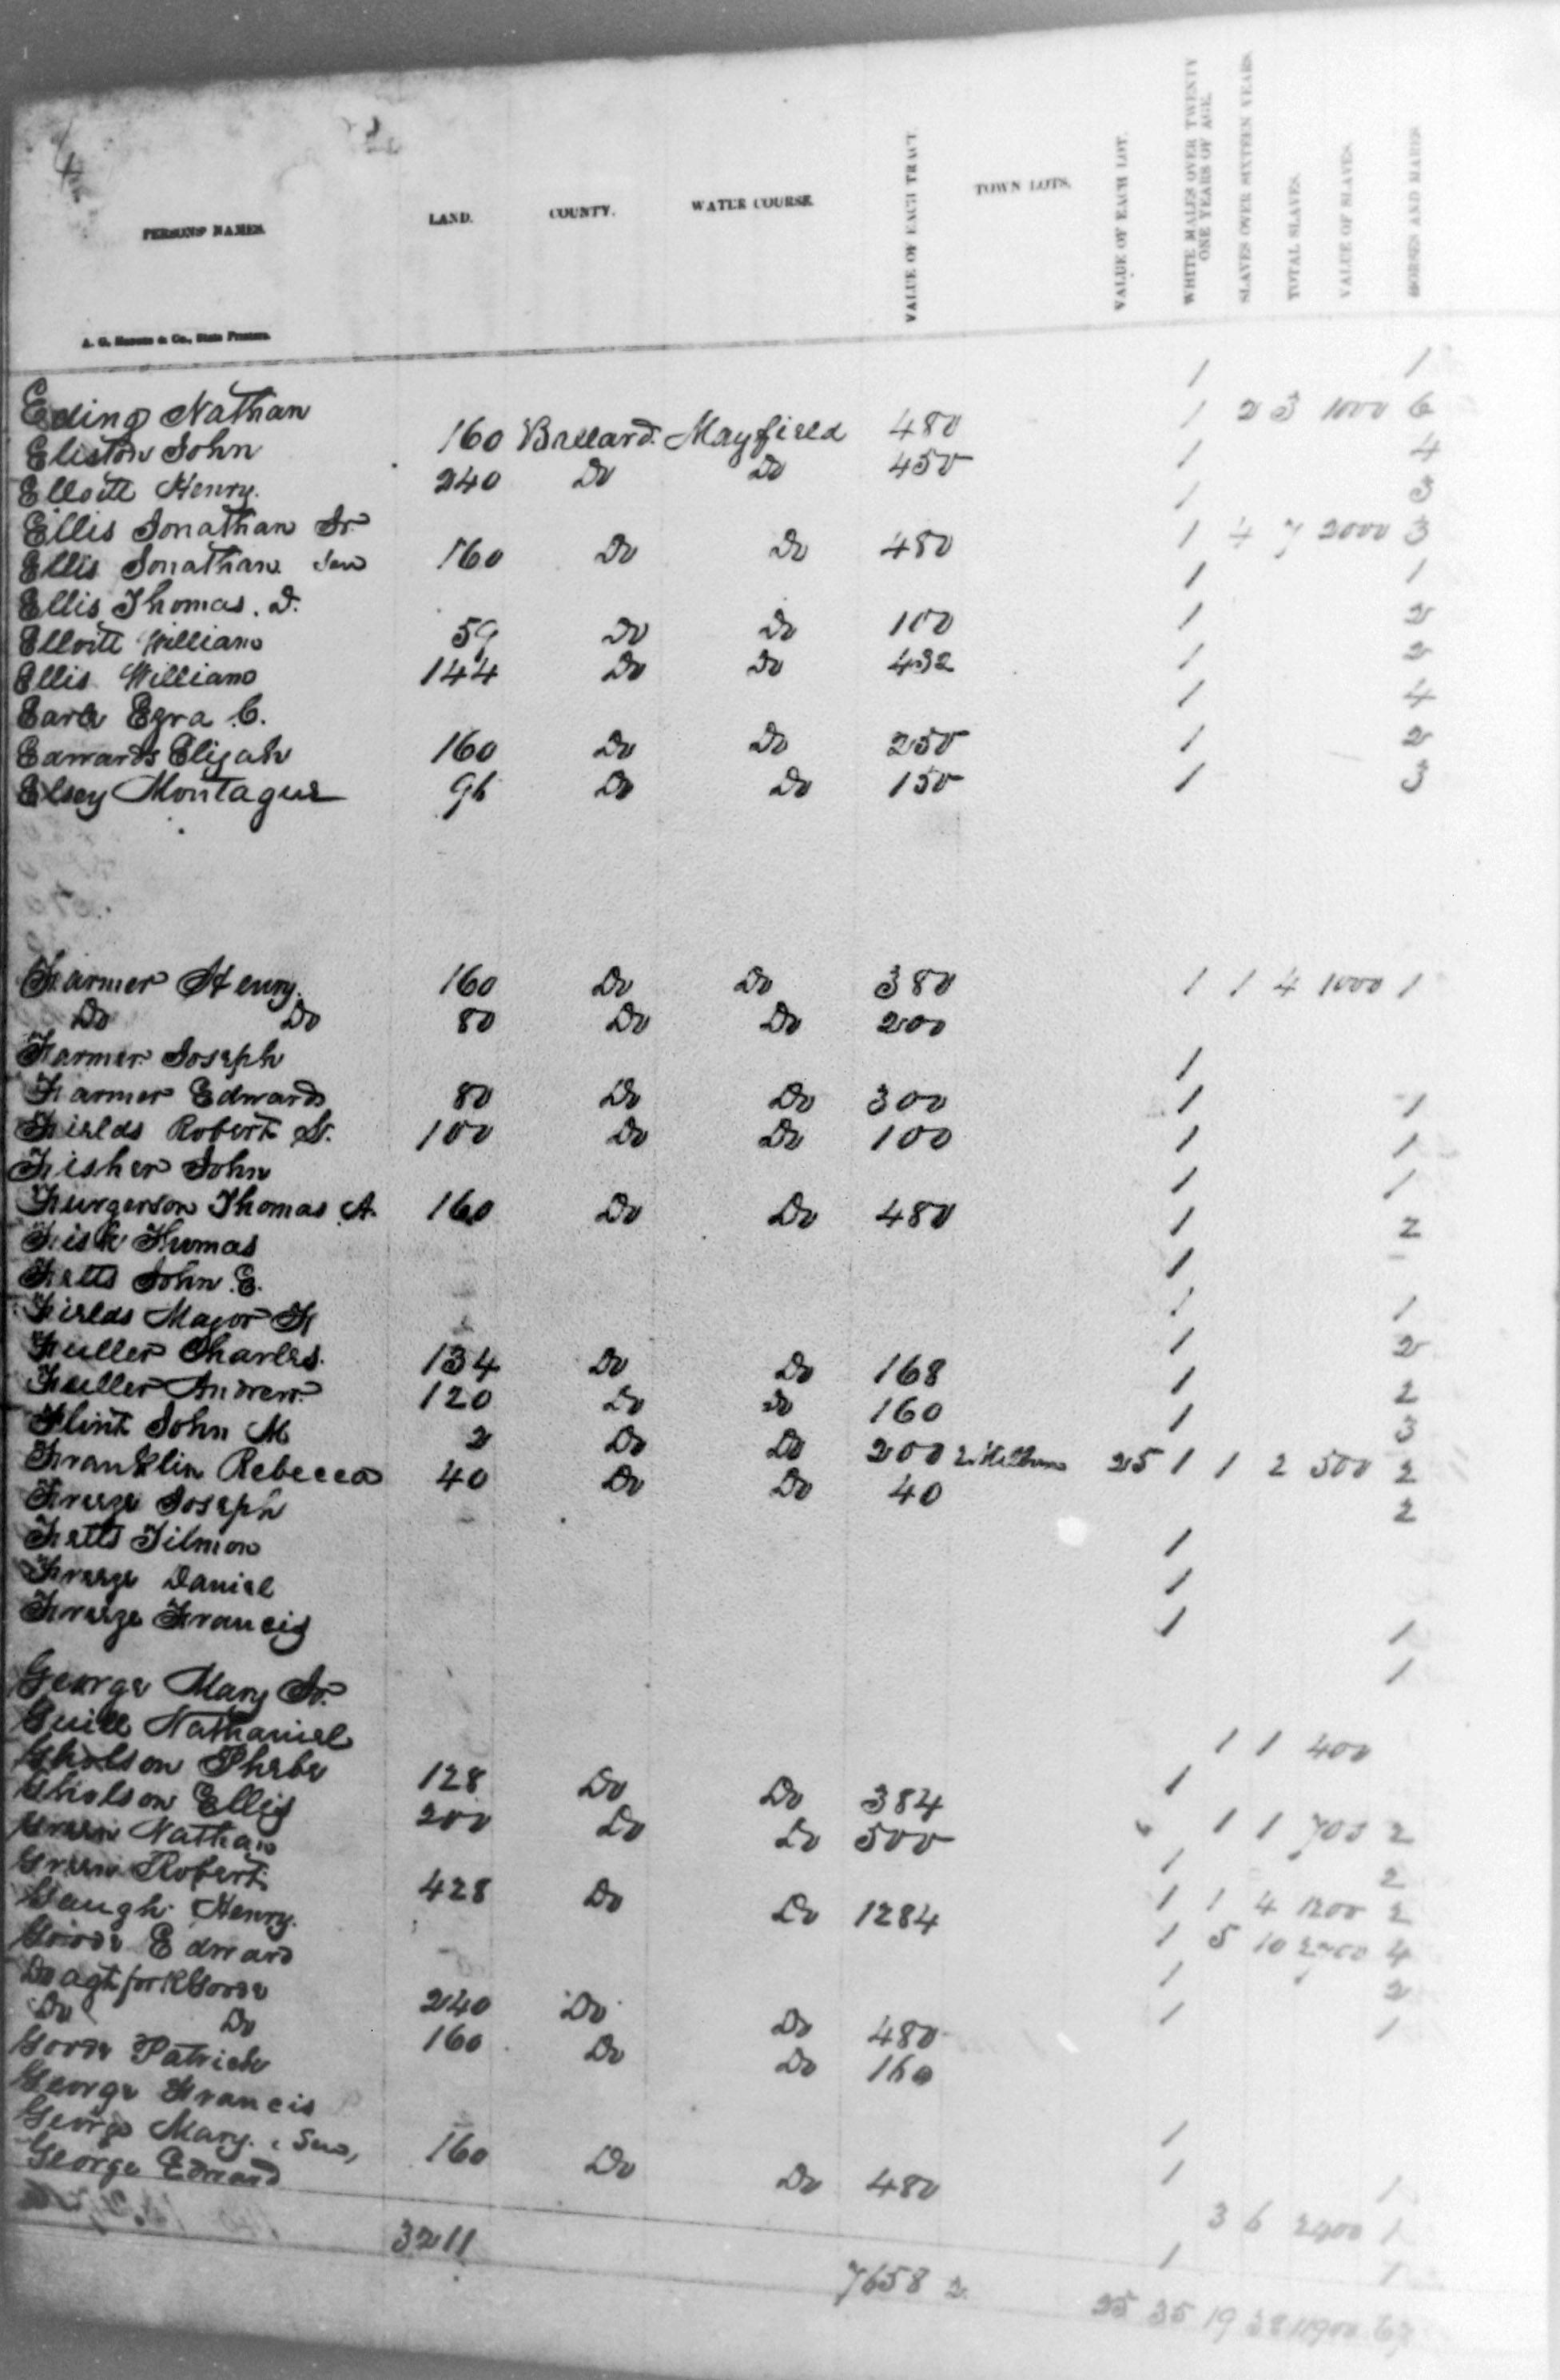 PERSONS' NAMES. LAND. COUNTY. WATER COURSE. VALUE OF EACH TRACT. TOWN LOTS. VALUE OF EACH LOT. WHITE MALES OVER TWENTY ONE YEARS OF AGE. SLAVES OVER SIXTEEN YEARS. TOTAL SLAVES. VALUE OF SLAVES. HORSES AND MARES.
A. G. Hodges & Co., State Printers.
Eding Nathan 1 1
Eliston John 160 Ballard Mayfield 480 1 2 3 1000 6
Elloitt Henry. 240 Do Do 450 1 4
Ellis Jonathan Jr 1 3
Ellis Jonathan Sen 160 Do Do 480 1 4 7 2000 3
Ellis Thomas. D. 1 1
Elloitt William 59 Do Do 100 1 2
Ellis William 144 Do Do 432 1 2
Earle Ezra C. 1 4
Edwards Elijah 160 Do Do 250 1 2
Elsey Montague 96 Do Do 150 1 3
Farmer Henry. 160 Do Do 380 1 1 4 1000 1
Do Do 80 Do Do 200
Farmer Joseph 1
Farmer Edward 80 Do Do 300 1 1
Fields Robert 100 Do Do 100 1 1
Fisher John 1 1
Furgerson Thomas A. 160 Do Do 480 1 2
Fisk Thomas 1
Fatts John E. 1 1
Fields Major F 1 2
Fuller Charles. 134 Do Do 168 1 2
Fuller Andrew 120 Do Do 160 1 3
Flint John M 2 Do Do 200 25 1 1 2 500 2
Franklin Rebecca 40 Do Do 40 2
Freeze Joseph 1
Fatts Tilmon 1
Freeze Daniel 1 1
Freeze Francis 1
George Mary Jr.
Guill Nathaniel 1
Gholson Phebe 128 Do Do 384 1 1 400
Gholson Ellis 200 Do Do 500
Green Nathan
Green Robert 428 Do Do 1284
Gaugh Henry.
Goode Edward
Do agt for R Goode 240 Do Do 480
Do Do 160 Do Do 160
Goode Patrick
George Francis
George Mary. Sen, 160 Do Do 480
George Edward
3211 7658 2 25 35 19 38 11900